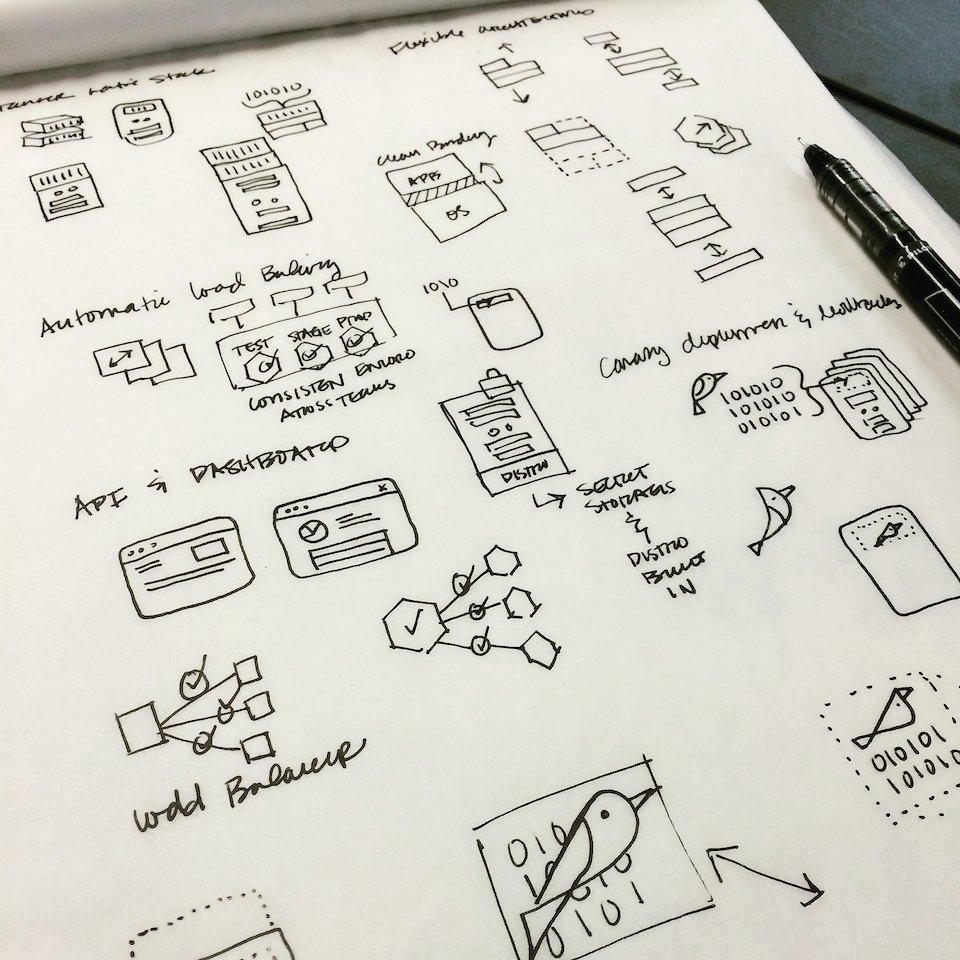 Stack
Flexible architectures
101010
Clean Boundary
APPS
OS
Automatic Load Balancing
TEST STAGE PROD
CONSISTEN ENVIRO
ACROSS TEAMS
1010
Canary deployment & rollbacks
101010
101010
010101
API & DASHBOARD
DISTRO
SECRET
STORAGES
&
DISTRO
BUILT
IN
Load Balancer
010101
101010
010
10
10
0101